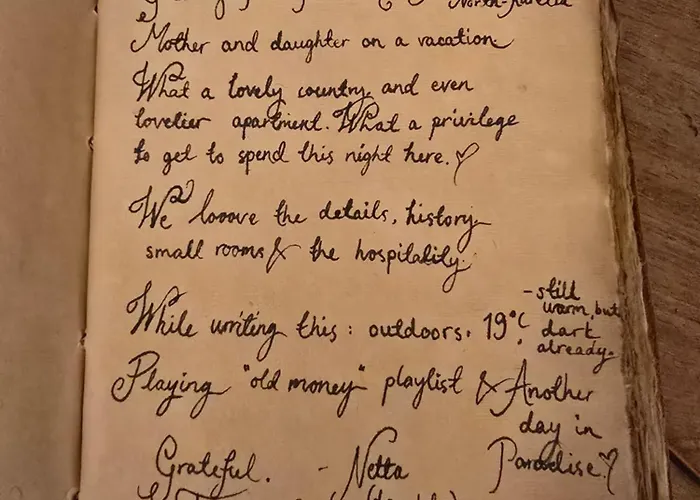 North-Karelia
Mother and daughter on a vacation
What a lovely country, and even
lovelier apartment. What a privilege
to get to spend this night here. ♡
We looove the details, history,
small rooms & the hospitality.
While writing this: outdoors. 19°C - still
warm, but
dark
already.
Playing "old money" playlist & Another
day in
Paradise ♡
Grateful. - Netta